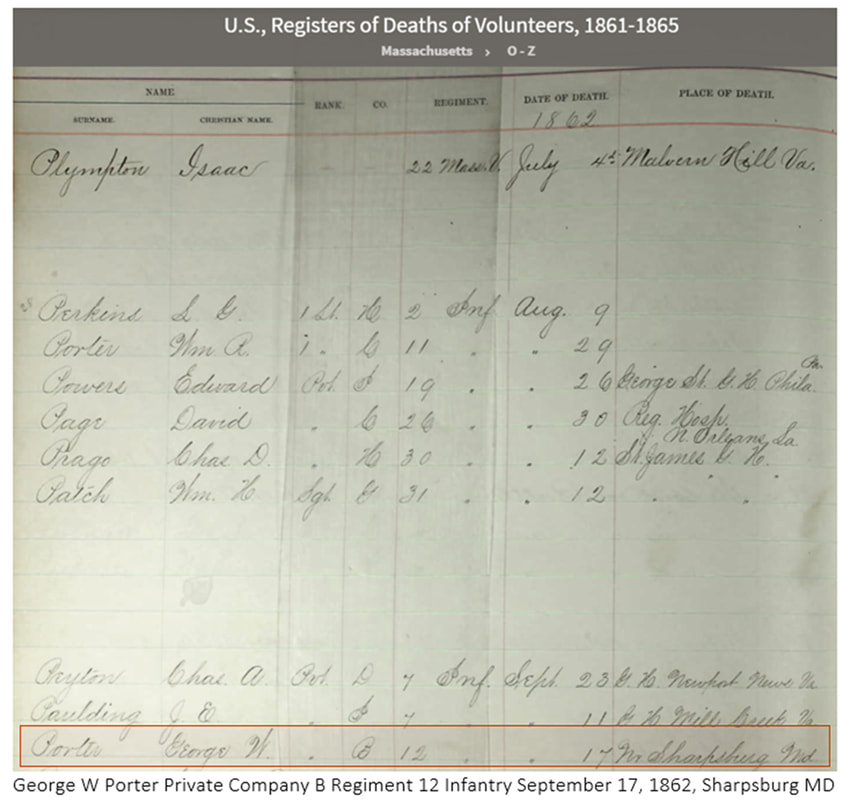 U.S., Registers of Deaths of Volunteers, 1861-1865
Massachusetts › O - Z
NAME
SURNAME. CHRISTIAN NAME. RANK. CO. REGIMENT. DATE OF DEATH. PLACE OF DEATH.
1862
Plympton Isaac 22 Mass. V. July 4th Malvern Hill Va.
Perkins S. G. 1 Lt. H 2 Inf Aug. 9
Porter Wm R. 1 " 11 " " 29
Pa.
Powers Edward Pvt. I 19 " " 26 George St. G. H. Phila.
Page David " C 26 " " 30 Reg. Hosp.
N. Orleans La
Prago Chas D. " H 30 " " 12 St. James G. H.
Patch Wm. H. Sgt G 31 " " 12 " "
Peyton Chas. A. Pvt. D 7 Inf. Sept. 23 G. H. Newport News Va
Paulding J. E. " F 7 " " 11 G H Mill Creek Va
Porter George W. " B 12 " " 17 Nr Sharpsburg Md.
George W Porter Private Company B Regiment 12 Infantry September 17, 1862, Sharpsburg MD